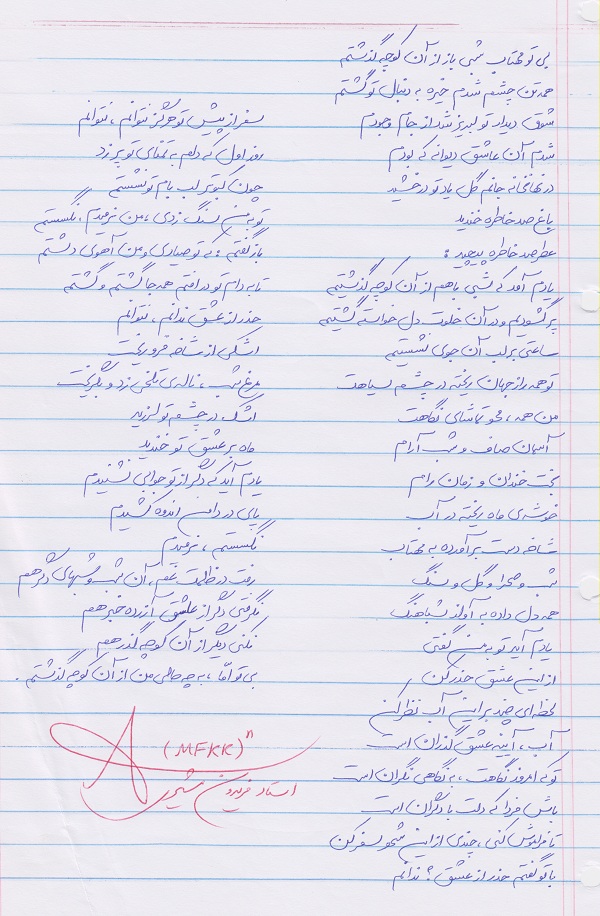 بی تو مهتاب شبی باز از آن کوچه گذشتم
همه تن چشم شدم خیره به دنبال تو گشتم
شوق دیدار تو لبریز شد از جام وجودم
شدم آن عاشق دیوانه که بودم
در نهانخانه جانم گل یاد تو درخشید
باغ صد خاطره خندید
عطر صد خاطره پیچید :
یادم آمد که شبی با هم از آن کوچه گذشتیم
پر گشودیم و در آن خلوت دل خواسته گشتیم
ساعتی بر لب آن جوی نشستیم
تو همه راز جهان ریخته در چشم سیاهت
من همه ، محو تماشای نگاهت
آسمان صاف و شب آرام
بخت خندان و زمان رام
خوشه‌ی ماه ریخته در آب
شاخه دست برآورده به مهتاب
شب و صحرا و گل و سنگ
همه دل داده به آواز شباهنگ
یادم آید تو به من گفتی
از این عشق حذر کن
لحظه‌ای چند بر این آب نظر کن
آب ، آیینه عشق گذران است
تو که امروز نگاهت ، به نگاهی نگران است
باش فردا که دلت با دگران است
تا فراموش کنی ، چندی از این شهر سفر کن
با تو گفتم حذر از عشق ؟ ندانم
سفر از پیش تو هرگز نتوانم ، نتوانم
روز اول که دلم به تمنای تو پر زد
چون کبوتر لب بام تو نشستم
تو به من سنگ زدی ، من نرمیدم ، نگسستم
باز گفتم : که تو صیادی و من آهوی دشتم
تا به دام تو درافتم همه جا گشتم و گشتم
حذر از عشق ندانم ، نتوانم
اشکی از شاخه فرو ریخت
مرغ شب ، ناله‌ی تلخی زد و بگریخت
اشک در چشم تو لرزید
ماه بر عشق تو خندید
یادم آید که دگر از تو جوابی نشنیدم
پای در دامن اندوه کشیدم
نگسستم ، نرمیدم
رفت در ظلمت غم ، آن شب و شبهای دگر هم
نگرفتی دگر از عاشق آزرده خبر هم
نکنی دیگر از آن کوچه گذر هم
بی تو اما ، به چه حالی من از آن کوچه گذشتم .
(MFKK)ⁿ
استاد فریدون مشیری